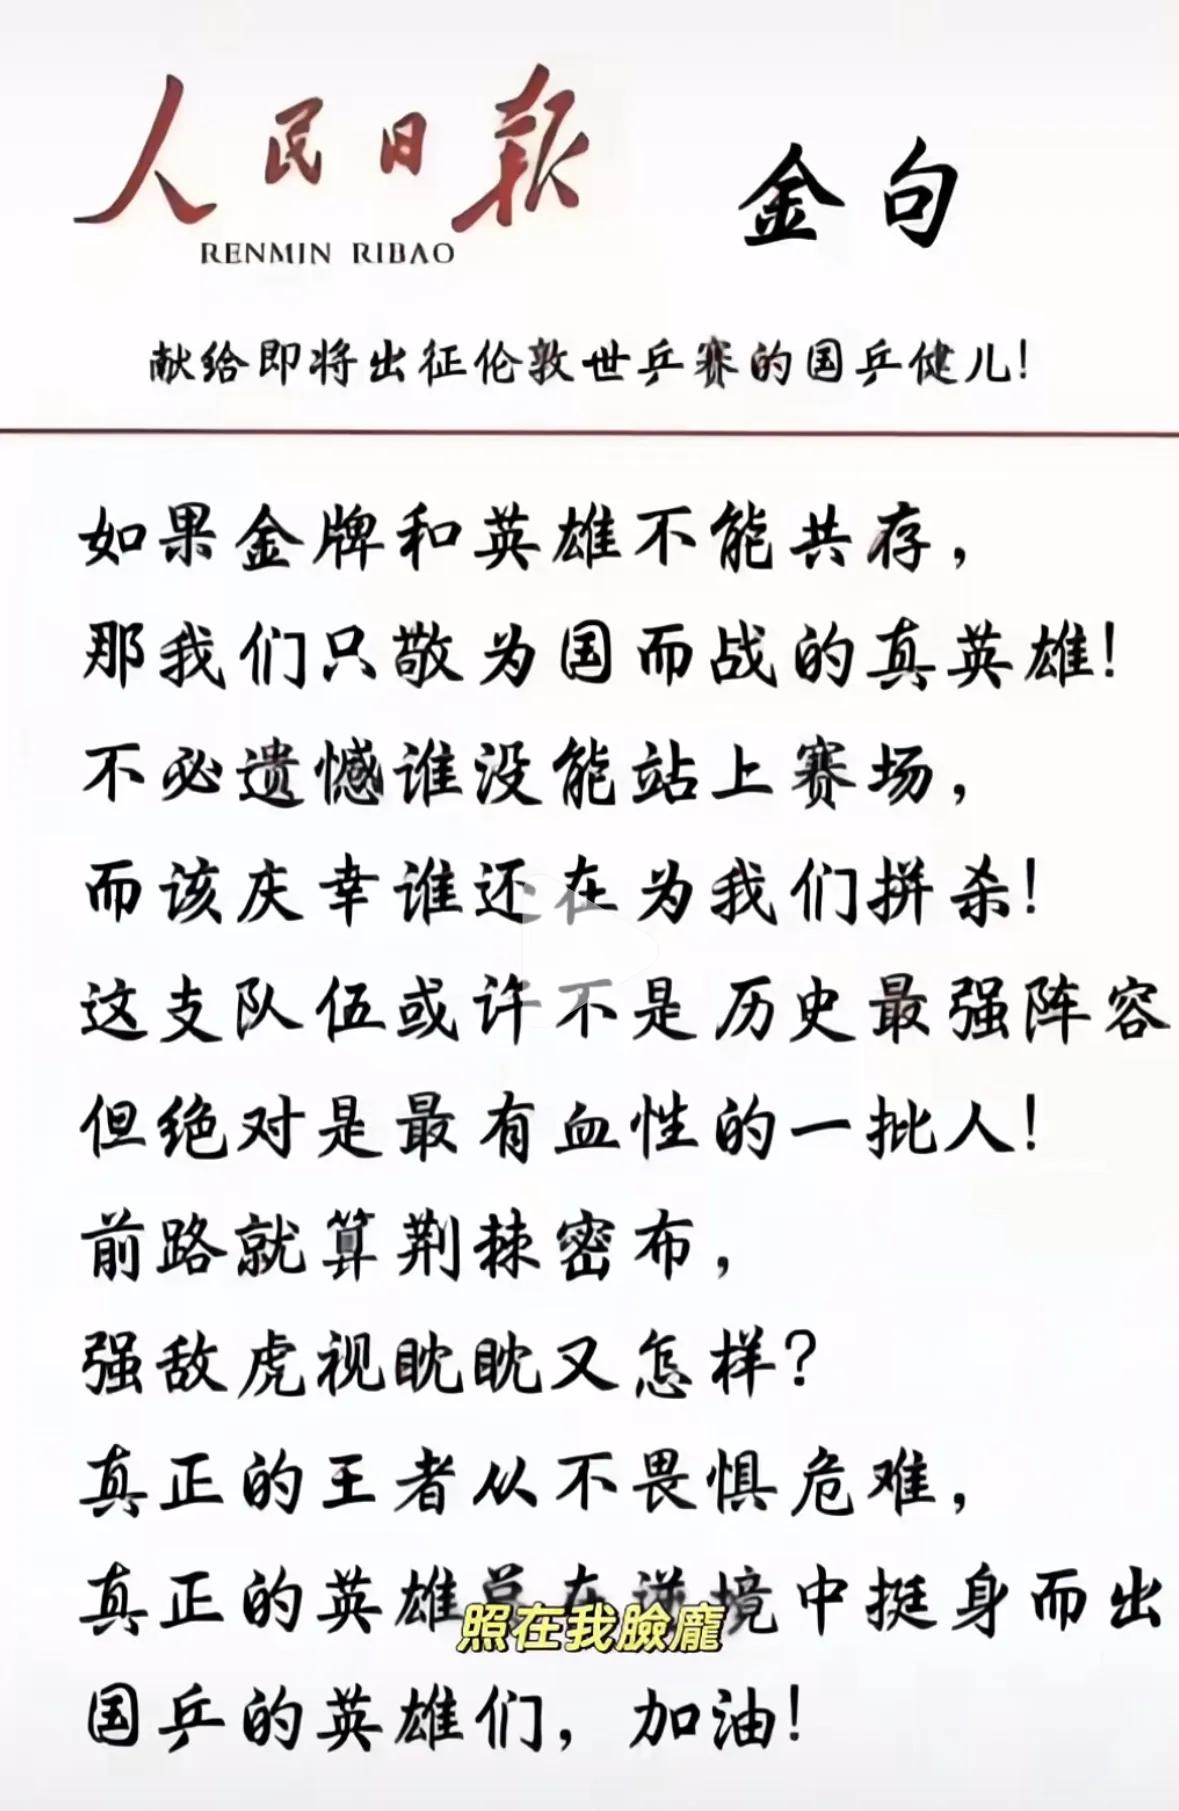 人民日报
RENMIN RIBAO
金句
献给即将出征伦敦世乒赛的国乒健儿!
如果金牌和英雄不能共存,
那我们只敬为国而战的真英雄!
不必遗憾谁没能站上赛场,
而该庆幸谁还在为我们拼杀!
这支队伍或许不是历史最强阵容
但绝对是最有血性的一批人!
前路就算荆棘密布,
强敌虎视眈眈又怎样?
真正的王者从不畏惧危难,
真正的英雄总在逆境中挺身而出
照在我臉龐
国乒的英雄们,加油!